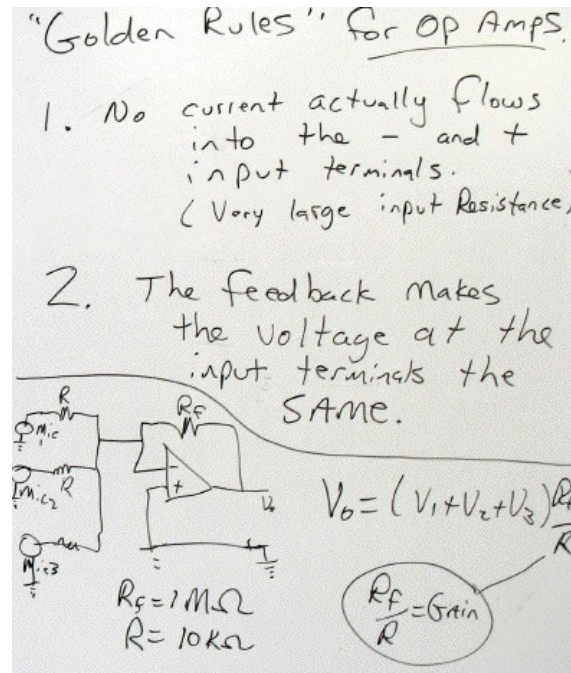 "Golden Rules" for Op Amps.
1. No current actually flows
into the - and +
input terminals.
(Very large input Resistance)
2. The feedback makes
the voltage at the
input terminals the
SAME.
R
Mic
R
Mic2
Mic3
Rf
-
+
Vo
Rf = 1 MΩ
R = 10 KΩ
Vo = (V1+V2+V3) Rf/R
Rf/R = Gain